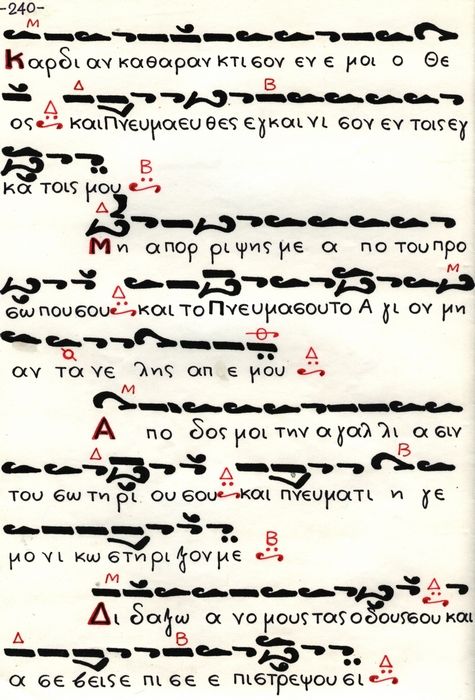 -240-
Καρδι αν καθαραν κτι σον εν ε μοι ο Θε
ος και Πνευμα ευ θες εγ και νι σον εν τοις εγ
κα τοις μου
Μη απορ ρι ψης με α πο του προ
σω που σου και το Πνευμα σου το Α γι ον μη
αν τα νε λης απ ε μου
Α πο δος μοι την α γαλ λι α σιν
του σω τη ρι ου σου και πνευματι η γε
μο νι κω στη ρι ξον με
Δι δαξω α νο μους τας ο δους σου και
α σε βεις ε πι σε ε πιστρεψου σι